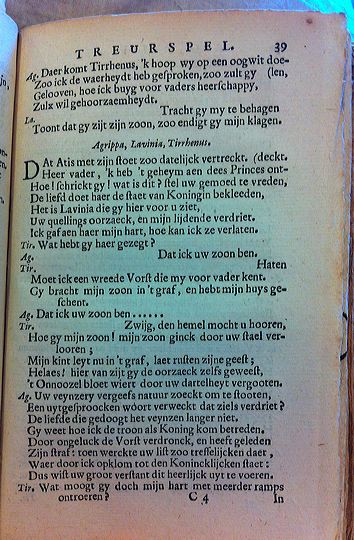 TREURSPEL. 39
Ag. Daer komt Tirrhenus, 'k hoop wy op een oogwit doe-
Zoo ick de waerheydt heb gesproken, zoo zult gy (len,
Gelooven, hoe ick buyg voor vaders heerschappy,
Zulx wil gehoorzaemheydt.
La. Tracht gy my te behagen
Toont dat gy zijt zijn zoon, zoo endigt gy mijn klagen.
Agrippa, Lavinia, Tirrhenus.
DAt Atis met zijn stoet zoo datelick vertreckt. (deckt.
Heer vader, 'k heb 't geheym aen dees Princes ont-
Hoe! schrickt gy! wat is dit? stel uw gemoed te vreden,
De liefd doet haer de staet van Koningin bekleeden,
Het is Lavinia die gy hier voor u ziet,
Uw quellings oorzaeck, en mijn lijdende verdriet.
Ick gaf aen haer mijn hart, hoe kan ick ze verlaten.
Tir. Wat hebt gy haer gezegt?
Ag. Dat ick uw zoon ben.
Tir. Haten
Moet ick een wreede Vorst die my voor vader kent.
Gy bracht mijn zoon in 't graf, en hebt mijn huys ge-
schent.
Ag. Dat ick uw zoon ben......
Tir. Zwijg, den hemel mocht u hooren,
Hoe gy mijn zoon! mijn zoon ginck door uw stael ver-
looren;
Mijn kint leyt nu in 't graf, laet rusten zijne geest;
Helaes! hier van zijt gy de oorzaeck zelfs geweest,
't Onnoozel bloet wiert door uw dartelheyt vergooten.
Ag. Uw veynzery vergeefs natuur zoeckt om te stooten,
Een uytgesproocken woort verweckt dat ziels verdriet?
De liefde die gedoogt het veynzen langer niet.
Gy weet hoe ick de troon als Koning kom betreden.
Door ongeluck de Vorst verdronck, en heeft geleden
Zijn straf: toen werckte uw list zoo treffelijcken daer,
Waer door ick opklom tot den Konincklijcken staet:
Dus wist uw groot verstant dit heerlijck uyt te voeren.
Tir. Wat moogt gy doch mijn hart met meerder ramps
ontroeren? C 4 In